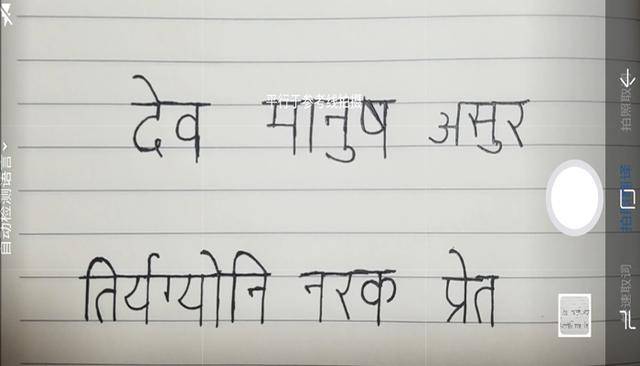 平行于参考线拍摄
देव मानुष असुर
तिर्यग्योनि नरक प्रेत
自动检测语言
拍照取
速取词